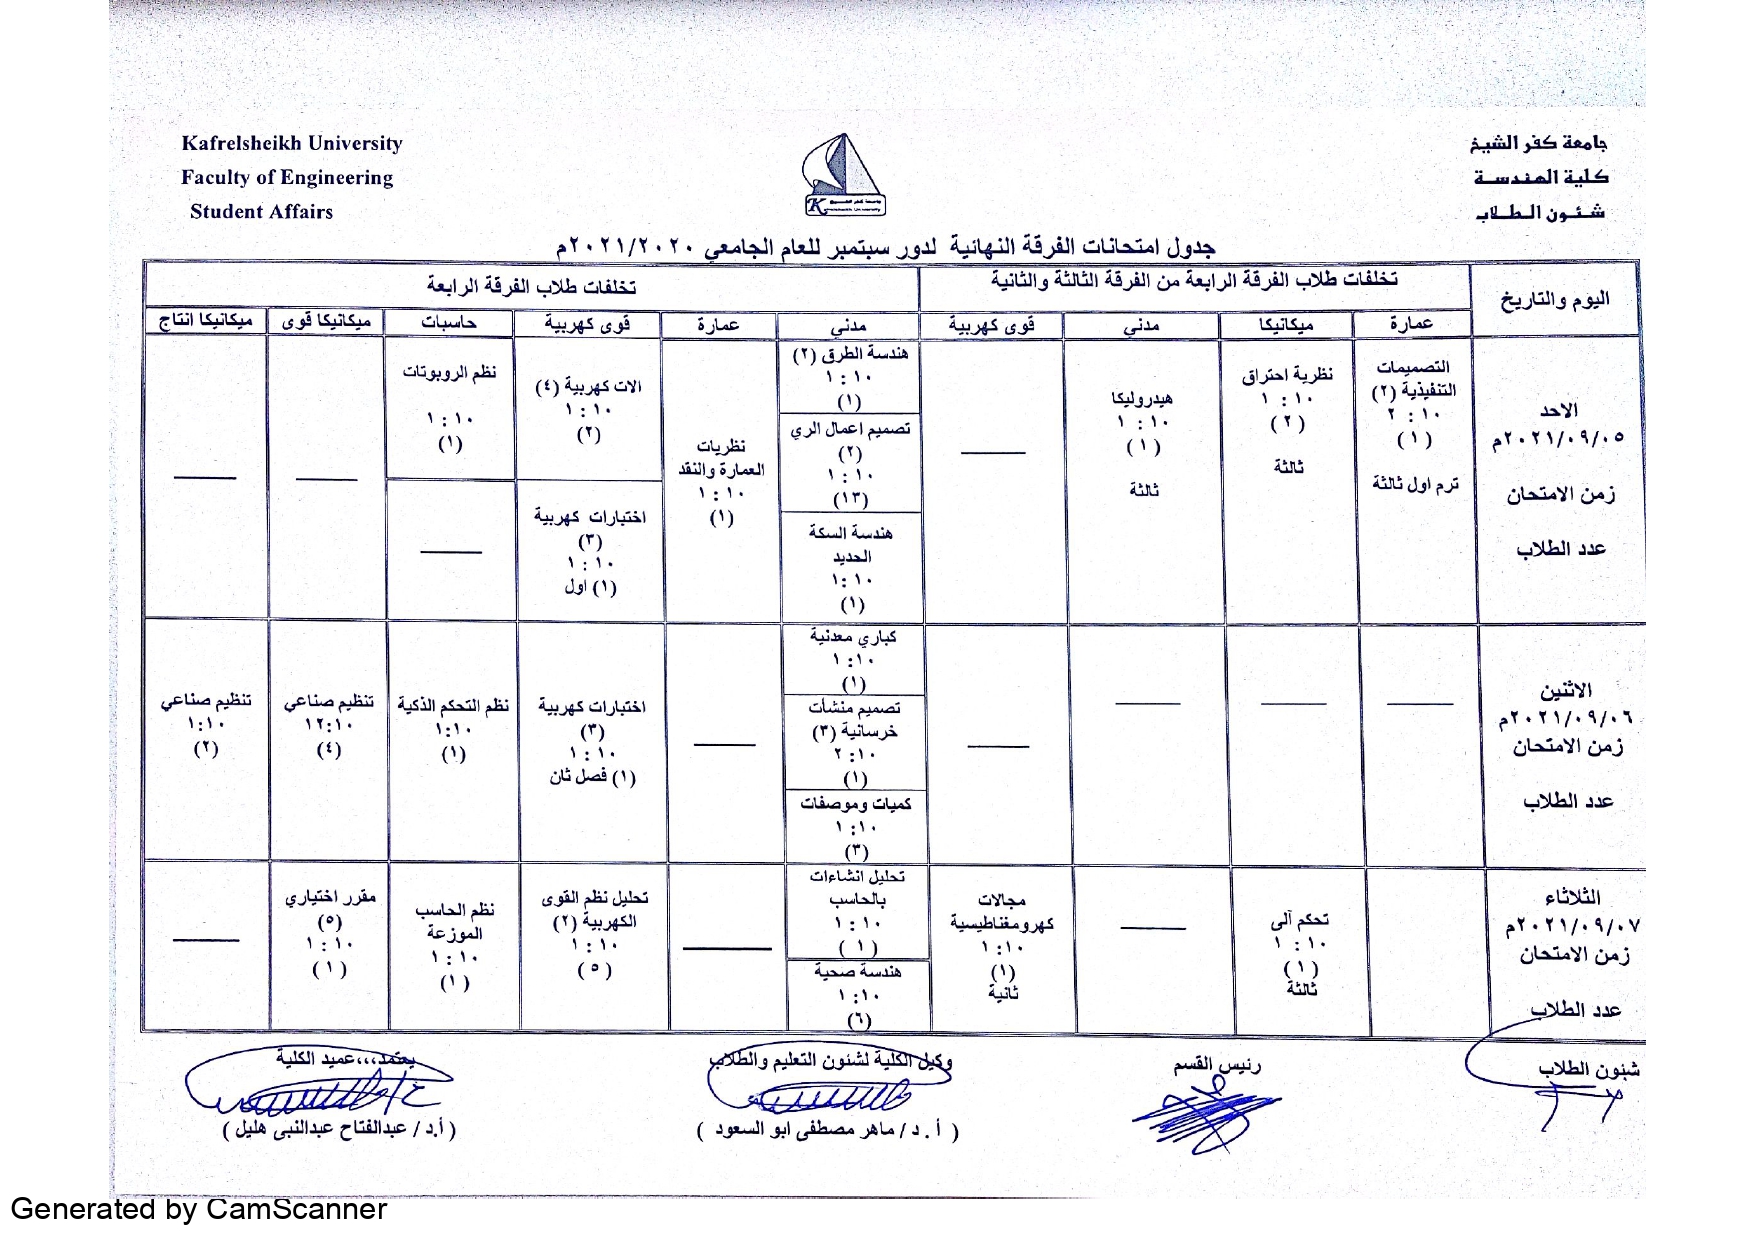 Kafrelsheikh University
Faculty of Engineering
Student Affairs
جامعة كفر الشيخ
كلية الهندسة
شئون الطلاب
جدول امتحانات الفرقة النهائية لدور سبتمبر للعام الجامعي ٢٠٢١/٢٠٢٠م
اليوم والتاريخ
تخلفات طلاب الفرقة الرابعة من الفرقة الثالثة والثانية
تخلفات طلاب الفرقة الرابعة
عمارة
ميكانيكا
مدني
قوى كهربية
مدني
عمارة
قوى كهربية
حاسبات
ميكانيكا قوى
ميكانيكا انتاج
الاحد
٢٠٢١/٠٩/٠٥م
زمن الامتحان
عدد الطلاب
التصميمات
التنفيذية (٢)
١٠ : ٢
(١)
ترم اول ثالثة
نظرية احتراق
١٠ : ١
(٢)
ثالثة
هيدروليكا
١٠ : ١
(١)
ثالثة
هندسة الطرق (٢)
١٠ : ١
(١)
تصميم اعمال الري
(٢)
١٠ : ١
(١٣)
هندسة السكة
الحديد
١٠ :١
(١)
نظريات
العمارة والنقد
١٠ : ١
(١)
الات كهربية (٤)
١٠ : ١
(٢)
اختبارات كهربية
(٣)
١٠ : ١
(١) اول
نظم الروبوتات
١٠ : ١
(١)
الاثنين
٢٠٢١/٠٩/٠٦م
زمن الامتحان
عدد الطلاب
كباري معدنية
١٠: ١
(١)
تصميم منشأت
خرسانية (٣)
١٠: ٢
(١)
كميات وموصفات
١٠: ١
(٣)
اختبارات كهربية
(٣)
١٠ : ١
(١) فصل ثان
نظم التحكم الذكية
١:١٠
(١)
تنظيم صناعي
١٢:١٠
(٤)
تنظيم صناعي
١:١٠
(٢)
الثلاثاء
٢٠٢١/٠٩/٠٧م
زمن الامتحان
عدد الطلاب
تحكم آلى
١٠ : ١
(١)
ثالثة
مجالات
كهرومغناطيسية
١٠: ١
(١)
ثانية
تحليل انشاءات
بالحاسب
١٠ : ١
(١)
هندسة صحية
١٠: ١
(٦)
تحليل نظم القوى
الكهربية (٢)
١٠ : ١
(٥)
نظم الحاسب
الموزعة
١٠ : ١
(١)
مقرر اختياري
(٥)
١٠ : ١
(١)
شئون الطلاب
رئيس القسم
وكيل الكلية لشئون التعليم والطلاب
يعتمد،،،عميد الكلية
( أ.د/ ماهر مصطفى ابو السعود )
( أ.د/ عبدالفتاح عبدالنبى هليل )
Generated by CamScanner